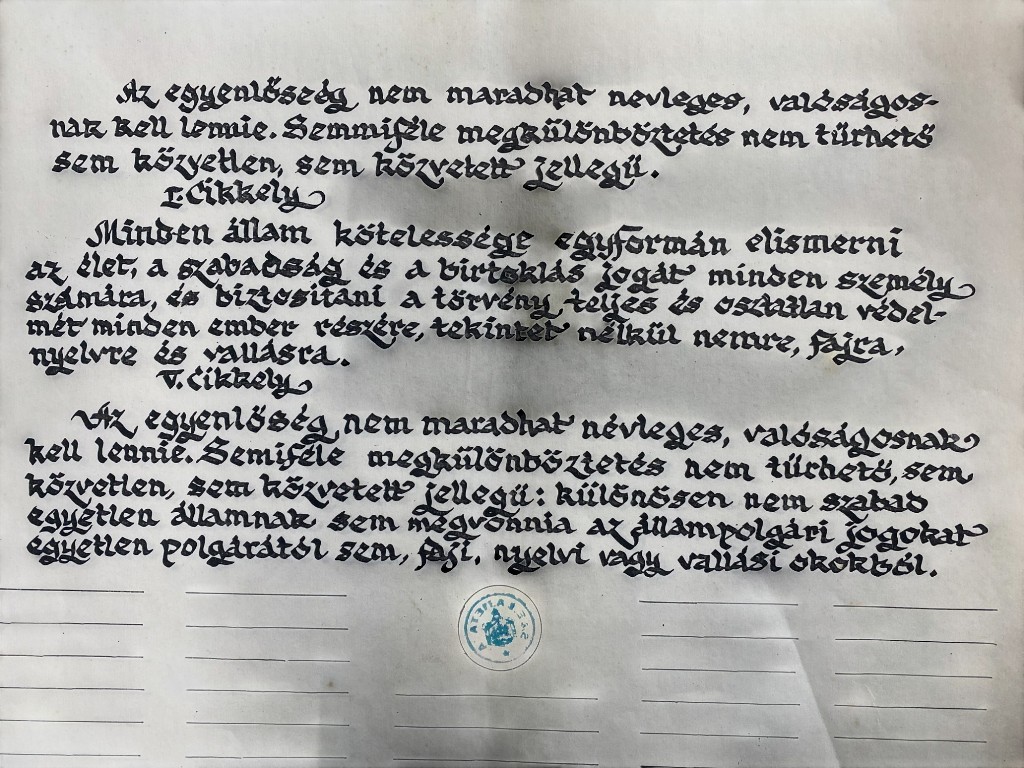 Az egyenlőség nem maradhat névleges, valóságos-
nak kell lennie. Semmiféle megkülönböztetés nem tűrhető
sem közvetlen, sem közvetett jellegű.
I. Cikkely
Minden állam kötelessége egyformán elismerni
az élet, a szabadság és a birtoklás jogát minden személy
számára, és biztosítani a törvény teljes és osztatlan védel-
mét minden ember részére, tekintet nélkül nemre, fajra,
nyelvre és vallásra.
V. Cikkely
Az egyenlőség nem maradhat névleges, valóságosnak
kell lennie. Semiféle megkülönböztetés nem tűrhető, sem
közvetlen, sem közvetett jellegű: különösen nem szabad
egyetlen államnak sem megvonnia az állampolgári jogokat
egyetlen polgárától sem, faji, nyelvi vagy vallási okokból.